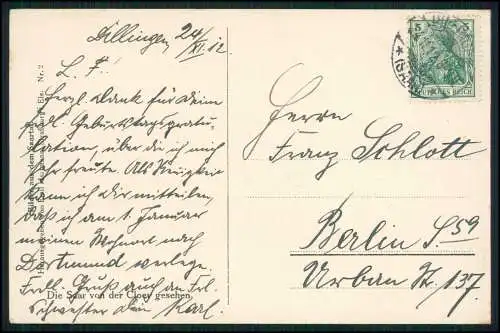 Dillingen, 24/XI. 12
L. F.!
Herzl. Dank für Deine
frdl. Geburtstagsgratu-
lation, über die ich mich
sehr freute. Als Neuigkeit
kann ich Dir mitteilen,
daß ich am 1. Januar
meinen Wohnort nach
Dortmund verlege.
Frdl. Gruß auch an Frl.
Schwester Dein Karl.
Die Saar von der Cloef gesehen.
Nr. 2
5 5
DEUTSCHES REICH
Herrn
Franz Schlott
Berlin S. 59
Urban Str. 137.